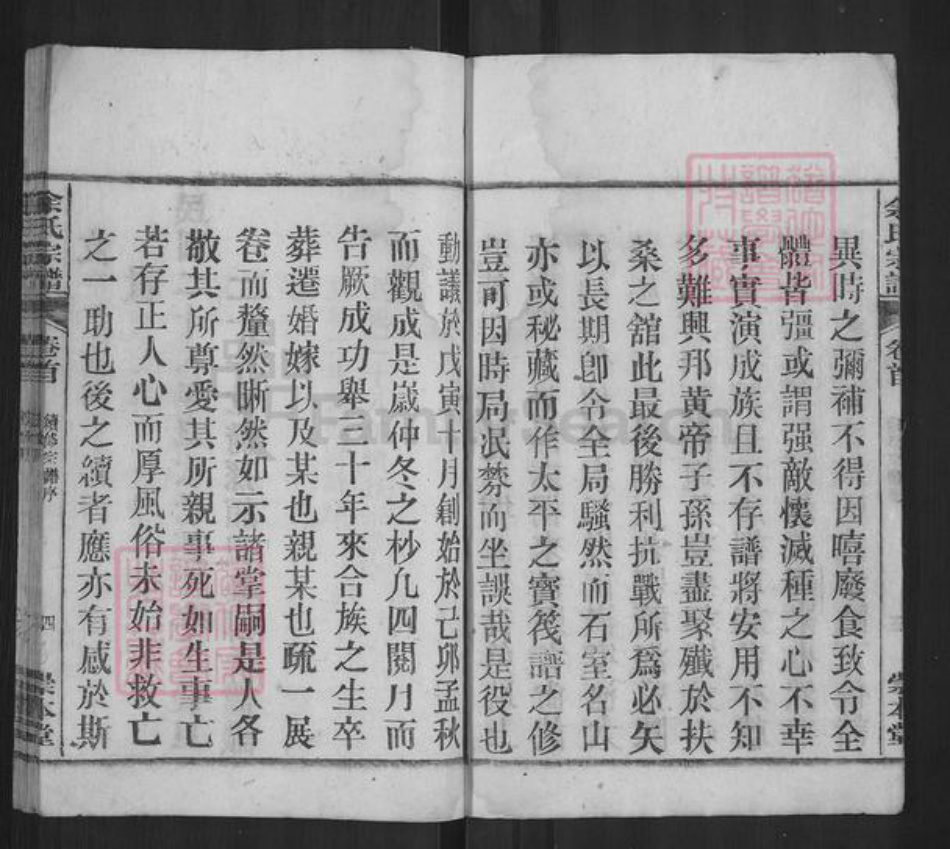 余氏宗譜
卷首
崇本堂
異時之彌補不得因噎廢食致令全
體皆彊或謂强敵懷滅種之心不幸
事實演成族且不存譜將安用不知
多難興邦黄帝子孫豈盡聚殲於扶
桑之舘此最後勝利抗戰所爲必矢
以長期卽令全局騷然而石室名山
亦或秘藏而作太平之寶筏譜之修
豈可因時局泯棼而坐誤哉是役也
動議於戊寅十月創始於己卯孟秋
而觀成是嵗仲冬之杪凢四閱月而
告厥成功舉三十年來合族之生卒
葬遷婚嫁以及某也親某也疏一展
卷而釐然晰然如示諸掌嗣是人各
敬其所尊愛其所親事死如生事亡
若存正人心而厚風俗未始非救亡
之一助也後之續者應亦有感於斯
余氏宗譜
卷首
續修宗譜序
四
崇本堂
FamilySearch